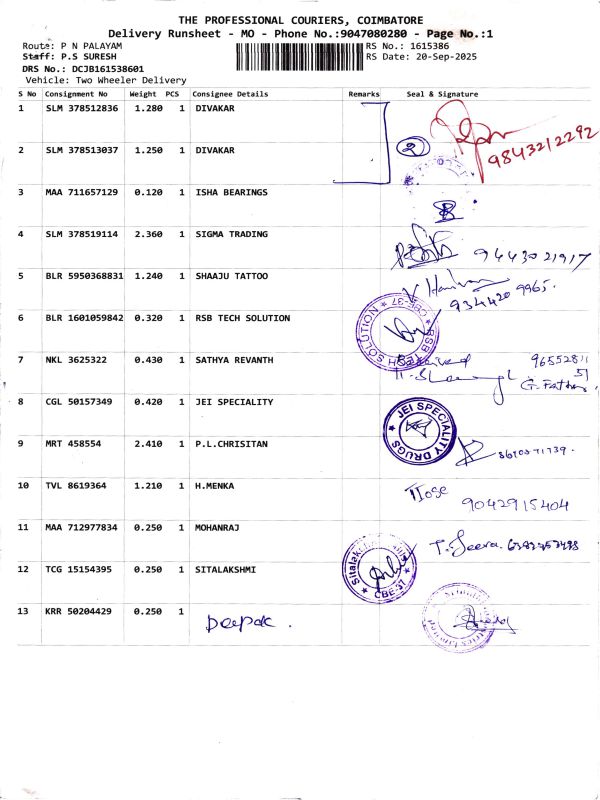 THE PROFESSIONAL COURIERS, COIMBATORE
Delivery Runsheet - MO - Phone No.:9047080280 - Page No.:1
Route: P N PALAYAM RS No.: 1615386
Staff: P.S SURESH RS Date: 20-Sep-2025
DRS No.: DCJB161538601
Vehicle: Two Wheeler Delivery
S No Consignment No Weight PCS Consignee Details Remarks Seal & Signature
1 SLM 378512836 1.280 1 DIVAKAR
2 SLM 378513037 1.250 1 DIVAKAR 2 9843212292
3 MAA 711657129 0.120 1 ISHA BEARINGS
4 SLM 378519114 2.360 1 SIGMA TRADING 9443021917
5 BLR 5950368831 1.240 1 SHAAJU TATTOO 934420 9965.
6 BLR 1601059842 0.320 1 RSB TECH SOLUTION RSB SOLUTION CBE-37
7 NKL 3625322 0.430 1 SATHYA REVANTH Received 96552811 51
G. Father
8 CGL 50157349 0.420 1 JEI SPECIALITY JEI SPECIALITY DRUGS
9 MRT 458554 2.410 1 P.L.CHRISITAN
10 TVL 8619364 1.210 1 H.MENKA Jose 9042915404
11 MAA 712977834 0.250 1 MOHANRAJ T. Jeeva.
12 TCG 15154395 0.250 1 SITALAKSHMI Sitalakshmi CBE-37
13 KRR 50204429 0.250 1 Deepak.